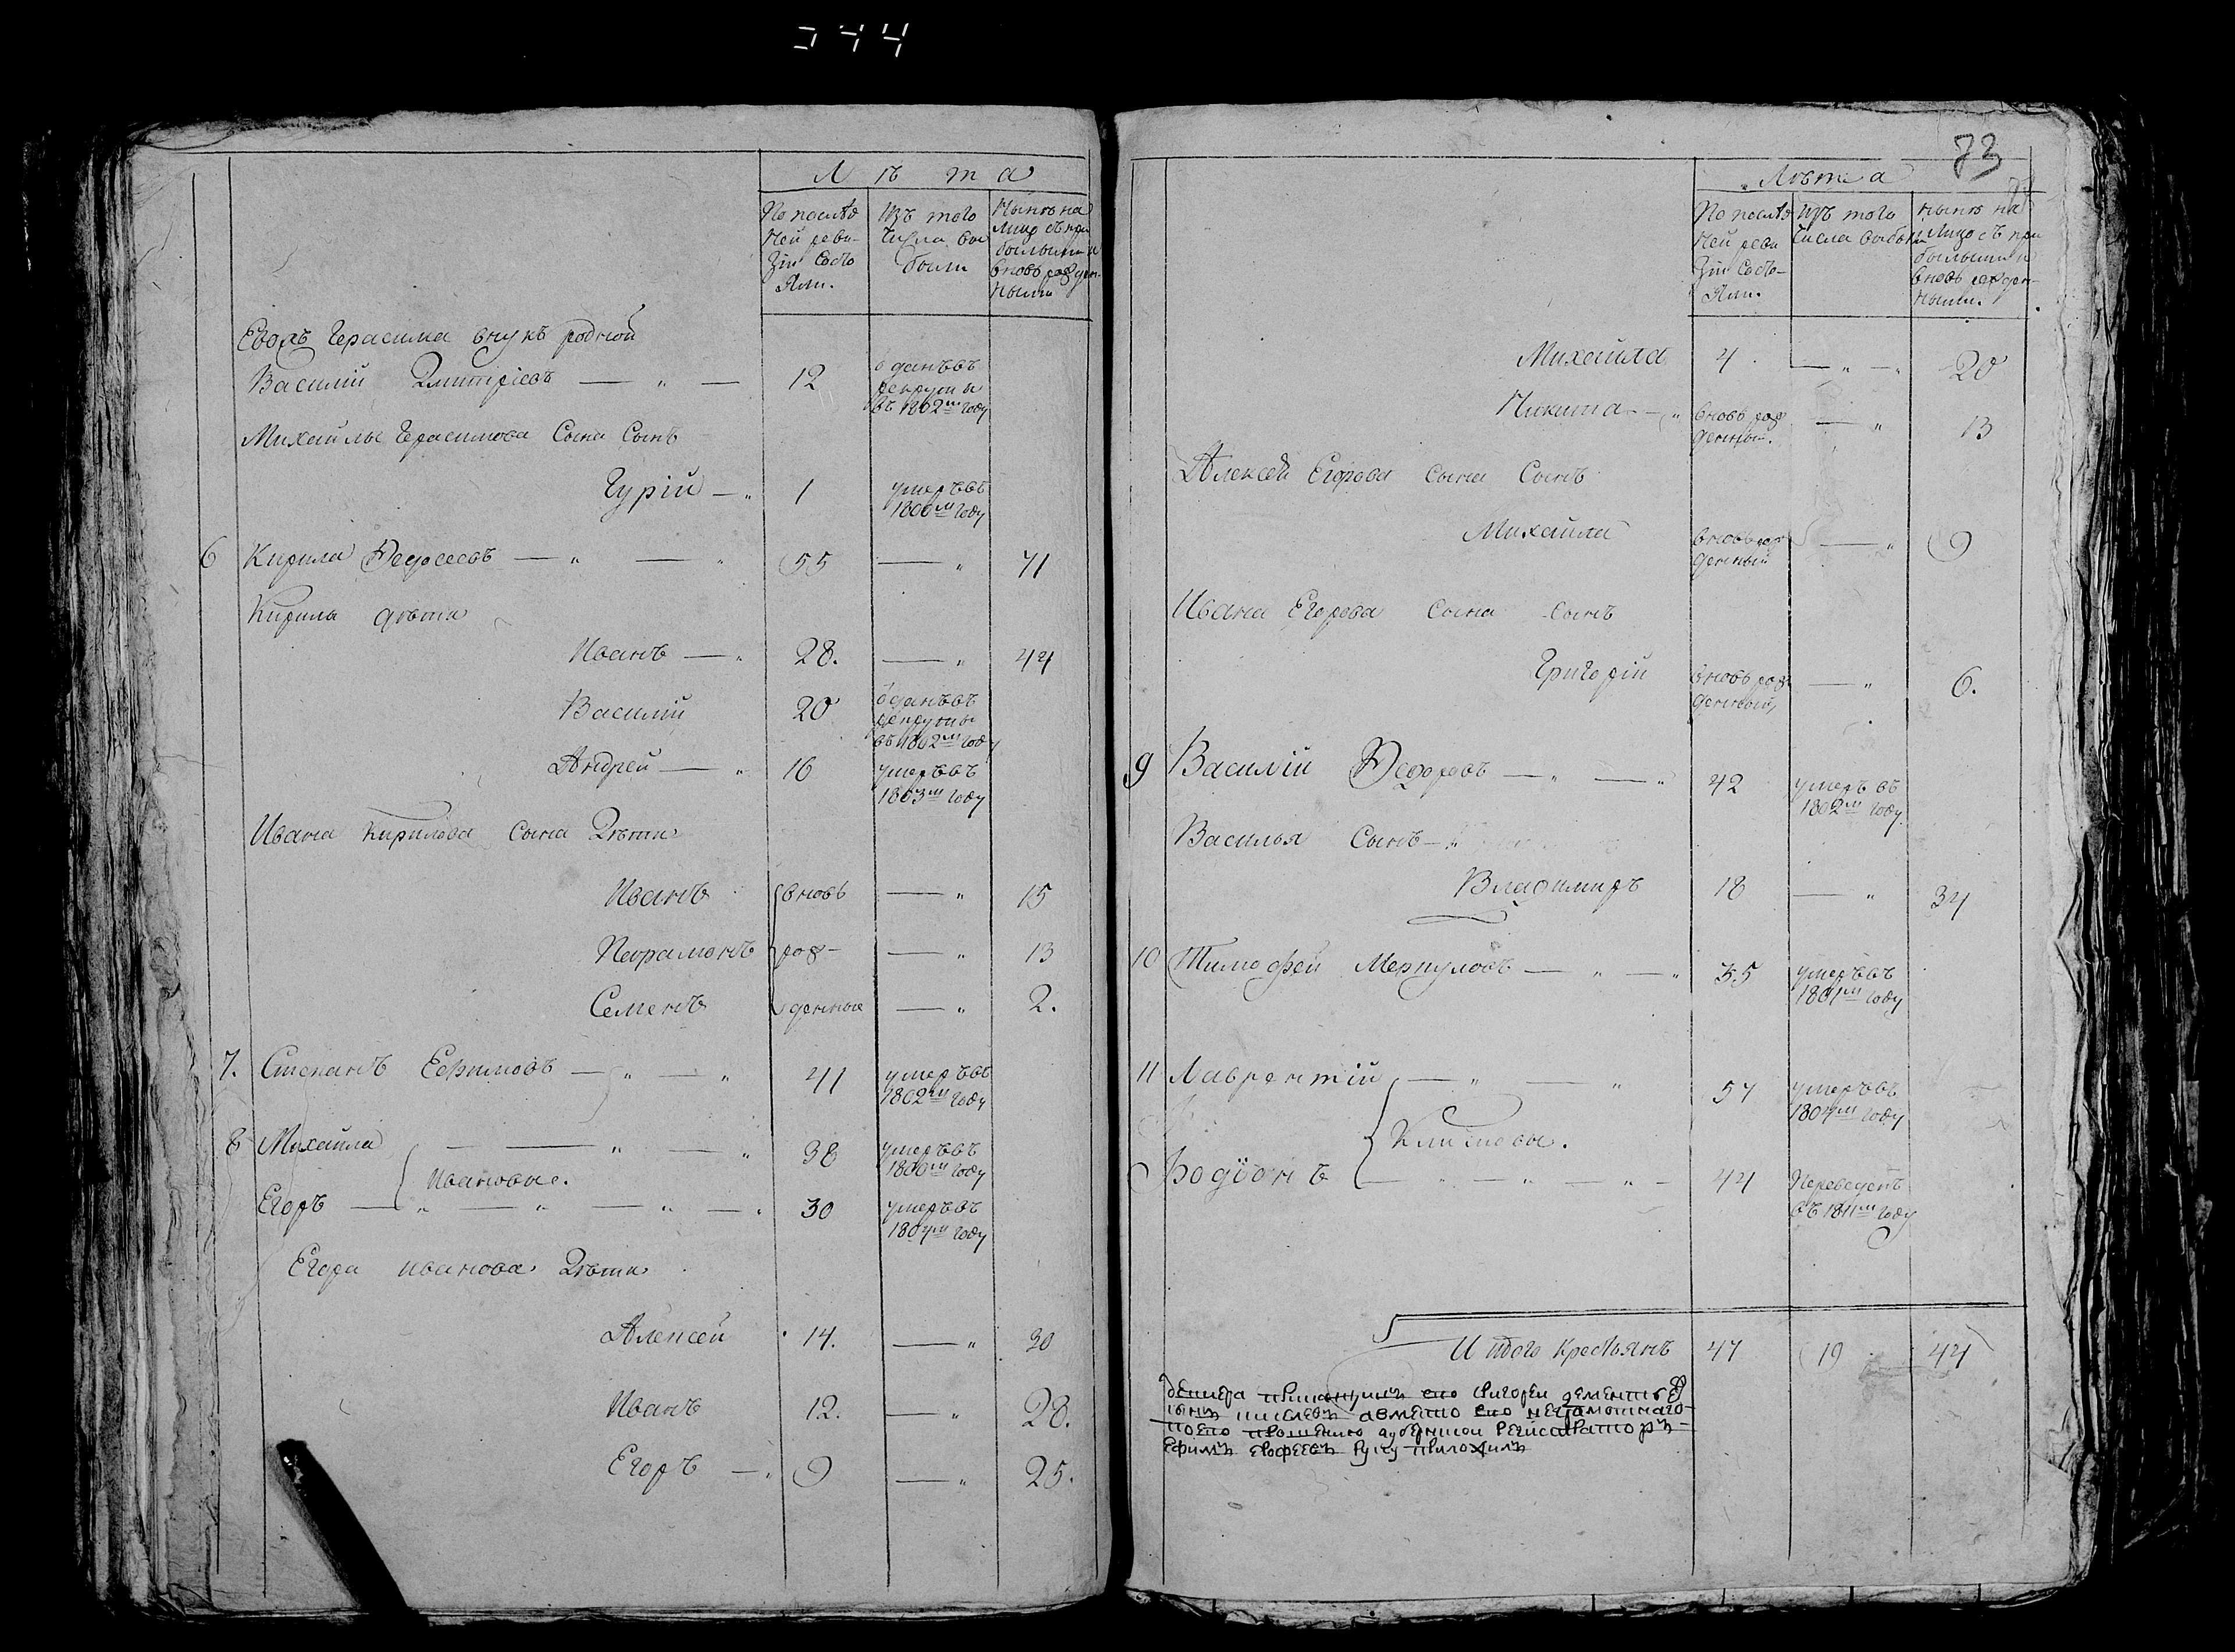 Л ѣ т а
По послѣд ней реви- зіи состо яли.
Изъ того числа вы были
Нынѣ на лицо съ при былыми и вновь рож ден- ными
Василій Дмитріевъ — " — 12 отданъ въ рекруты въ 1802м году
Михайлы Герасимова сына сынъ
Гурій — " 1 умеръ въ 1800м году
6 Кирила Федосеевъ — " — " 55 — " 71
Кирилы дѣти
Иванъ — " 28. — " 44
Василій 20 отданъ въ рекруты въ 1802м году
Андрей — " 16 умеръ въ 1803м году
Ивана Кирилова сына Дѣти
Иванъ вновь — " 15
рож- — " 13
Семенъ денные — " 2.
7. Степанъ Ефимовъ — " — " 41 умеръ въ 1802м году
8 Михайла — — " — " 38 умеръ въ 1800м году
Ивановые.
Егоръ — " — " — " — " 30 умеръ въ году
Егора иванова Дѣти
Алексей 14. — " 30
Иванъ 12. — " 28.
Егоръ — " 9 — " 25.
73
Лѣта
По послѣд ней реви зіи состо- яли.
Изъ того числа выбыли
нынѣ на лицо съ при былыми и вновь рожден- ными.
Михайла 4 — " — " 20
Никита — " вновь рож денный. — " 13
Алексея Егорова сына сынъ
Михайла вновь рож денный — " 9
Ивана Егорова сына сынъ
Григорій вновь рож денный — " 6.
9 Василій Федоровъ — " — " 42 умеръ въ 1802м году
Василья Сынъ — "
Владимиръ 18 — " 34
10 Тимофей Меркуловъ — " — " 35 умеръ въ 1801м году
11 Лаврентій — " — " 57 умеръ въ году
Родіонъ — " — " — " — 44 Переведенъ въ 1811м году
Итого крестьянъ 47 19 44
григорей дементьев
неграмотнаго
по ево прошению губернской регистраторъ
Ефимъ руку приложилъ